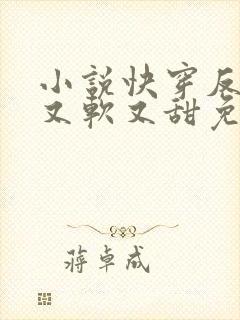 小說快穿反
又軟又甜免
蔣卓成